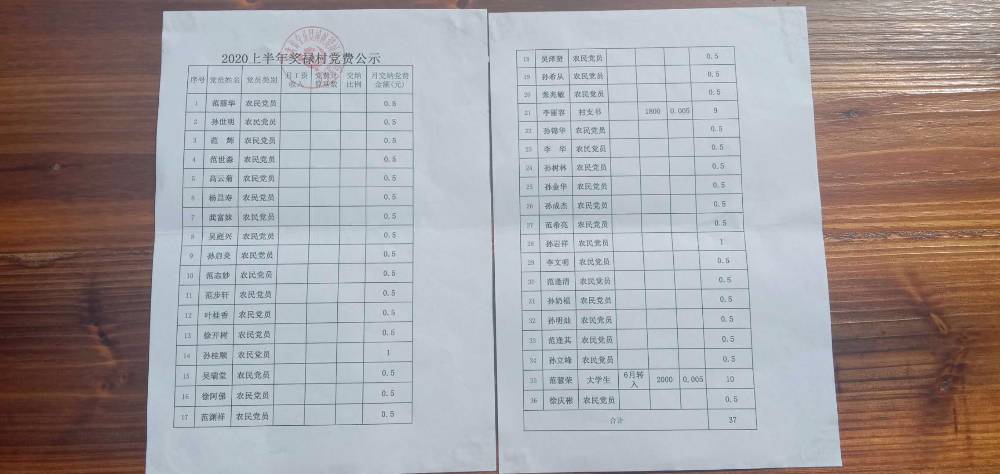 2020上半年奖禄村党费公示
序号 党员姓名 党员类别 月工资收入 党费计算基数 交纳比例 月交纳党费金额(元)
1 范丽华 农民党员 0.5
2 孙世明 农民党员 0.5
3 范 辉 农民党员 0.5
4 范世淼 农民党员 0.5
5 高云菊 农民党员 0.5
6 杨昌寿 农民党员 0.5
7 龚富妹 农民党员 0.5
8 吴庭兴 农民党员 0.5
9 孙启炎 农民党员 0.5
10 范志妙 农民党员 0.5
11 范步轩 农民党员 0.5
12 叶桂香 农民党员 0.5
13 徐开树 农民党员 0.5
14 孙桂顺 农民党员 1
15 吴瑞堂 农民党员 0.5
16 徐阿佛 农民党员 0.5
17 范测祥 农民党员 0.5
18 吴泽贤 农民党员 0.5
19 孙希从 农民党员 0.5
20 张兆敏 农民党员 0.5
21 李丽容 村支书 1800 0.005 9
22 孙锦华 农民党员 0.5
23 李 华 农民党员 0.5
24 孙树林 农民党员 0.5
25 孙金华 农民党员 0.5
26 孙成杰 农民党员 0.5
27 范希亮 农民党员 0.5
28 孙岩祥 农民党员 1
29 李文明 农民党员 0.5
30 范逢清 农民党员 0.5
31 孙奶福 农民党员 0.5
32 孙明灿 农民党员 0.5
33 范逢其 农民党员 0.5
34 孙立峰 农民党员 0.5
35 范慧荣 大学生 6月转入 2000 0.005 10
36 徐庆彬 农民党员 0.5
合计 37